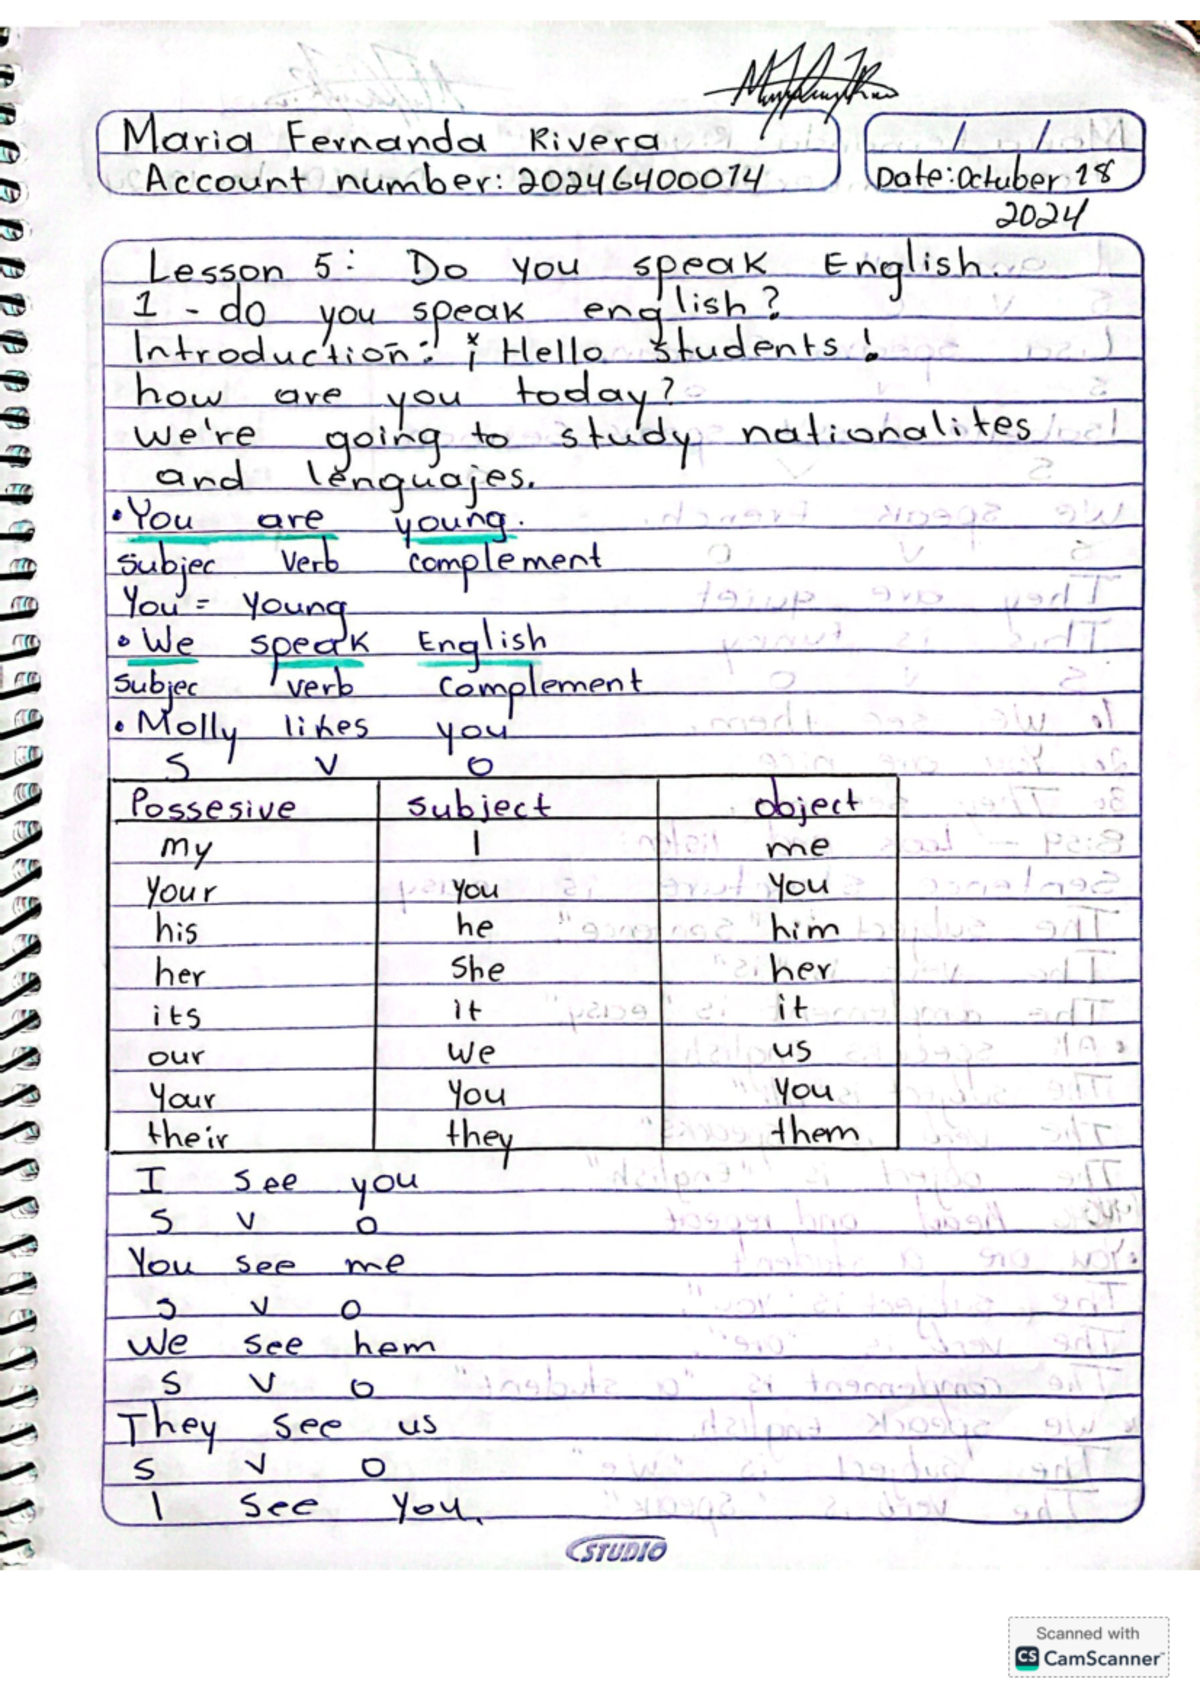 Maria Fernanda Rivera
Account number: 20246400074
Date: Octuber 18
2024
Lesson 5: Do you speak English.
1 - do you speak english?
Introduction: ¡Hello students!
how are you today?
We're going to study nationalites
and lenguajes.
• You are young.
Subjec Verb complement
You = Young
• We speak English
Subjec verb complement
• Molly likes you
S V O
Possesive subject object
my I me
your you you
his he him
her She her
its it it
our we us
Your you you
their they them
I see you
S V O
You see me
S V O
We see hem
S V O
They see us
S V O
I see you.
STUDIO
Scanned with
CS CamScanner